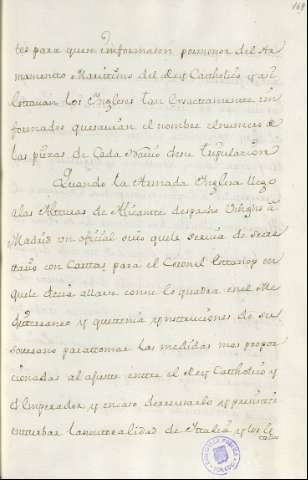 169
tes para quen ynformason pormenor del Ar
mamento Maritimo del Rey Catholico y asi
estavan los Yngleses tan exactamente in
formados que savian el nombre el numero de
las piezas de Cada Navio de su tripulacion
Quando la Armada Ynglesa llego
alas Alturas de Alicante despacho Vibighs a
Madrid un ofizial suio que le servia de secre
tario con Cartas para el Coronel Estanop en
que le decia allarse con su esquadra en el Me
diterraneo y que tenia ynstrucciones de su
soverano para tomar las medidas mas propor
cionadas al ajuste entre el Rey Catholico y
el Emperador y en caso de reusarlo y
la neutralidad de Ytalia y los
BIBLIOTECA PUBLICA
TOLEDO